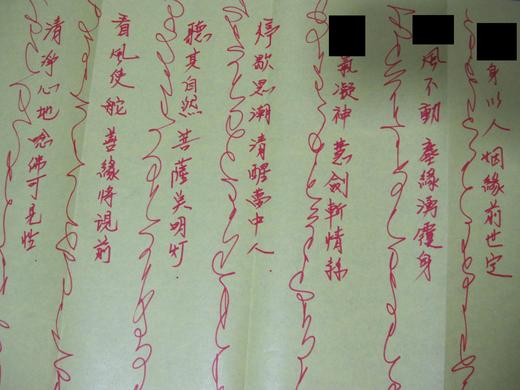 身以人 姻緣前世定
風不動 塵緣湧纏身
氣凝神 慧劍斬情絲
停歇思潮 清醒夢中人.
聽其自然 菩薩是明灯.
看風使舵 善緣將現前
清淨心地 唸佛可見性.